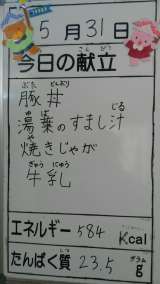 5月31日
今日の献立
こんだて
豚丼
ぶた どんぶり
湯葉のすまし汁
ゆば じる
焼きじゃが
や
牛乳
ぎゅう にゅう
エネルギー 584 Kcal
たんぱく質 23.5 g
しつ グラム